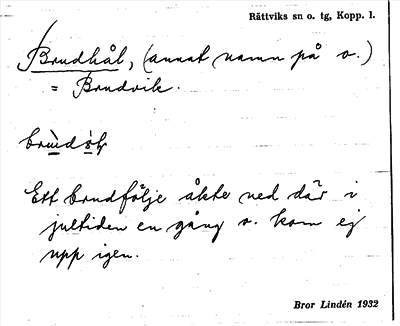 Rättviks sn o. tg, Kopp. l.
Brudhål, (annat namn på o.)
= Brudvik.
Ett brudfölje åkte ned där i
jultiden en gång o. kom ej
upp igen.
Bror Lindén 1932